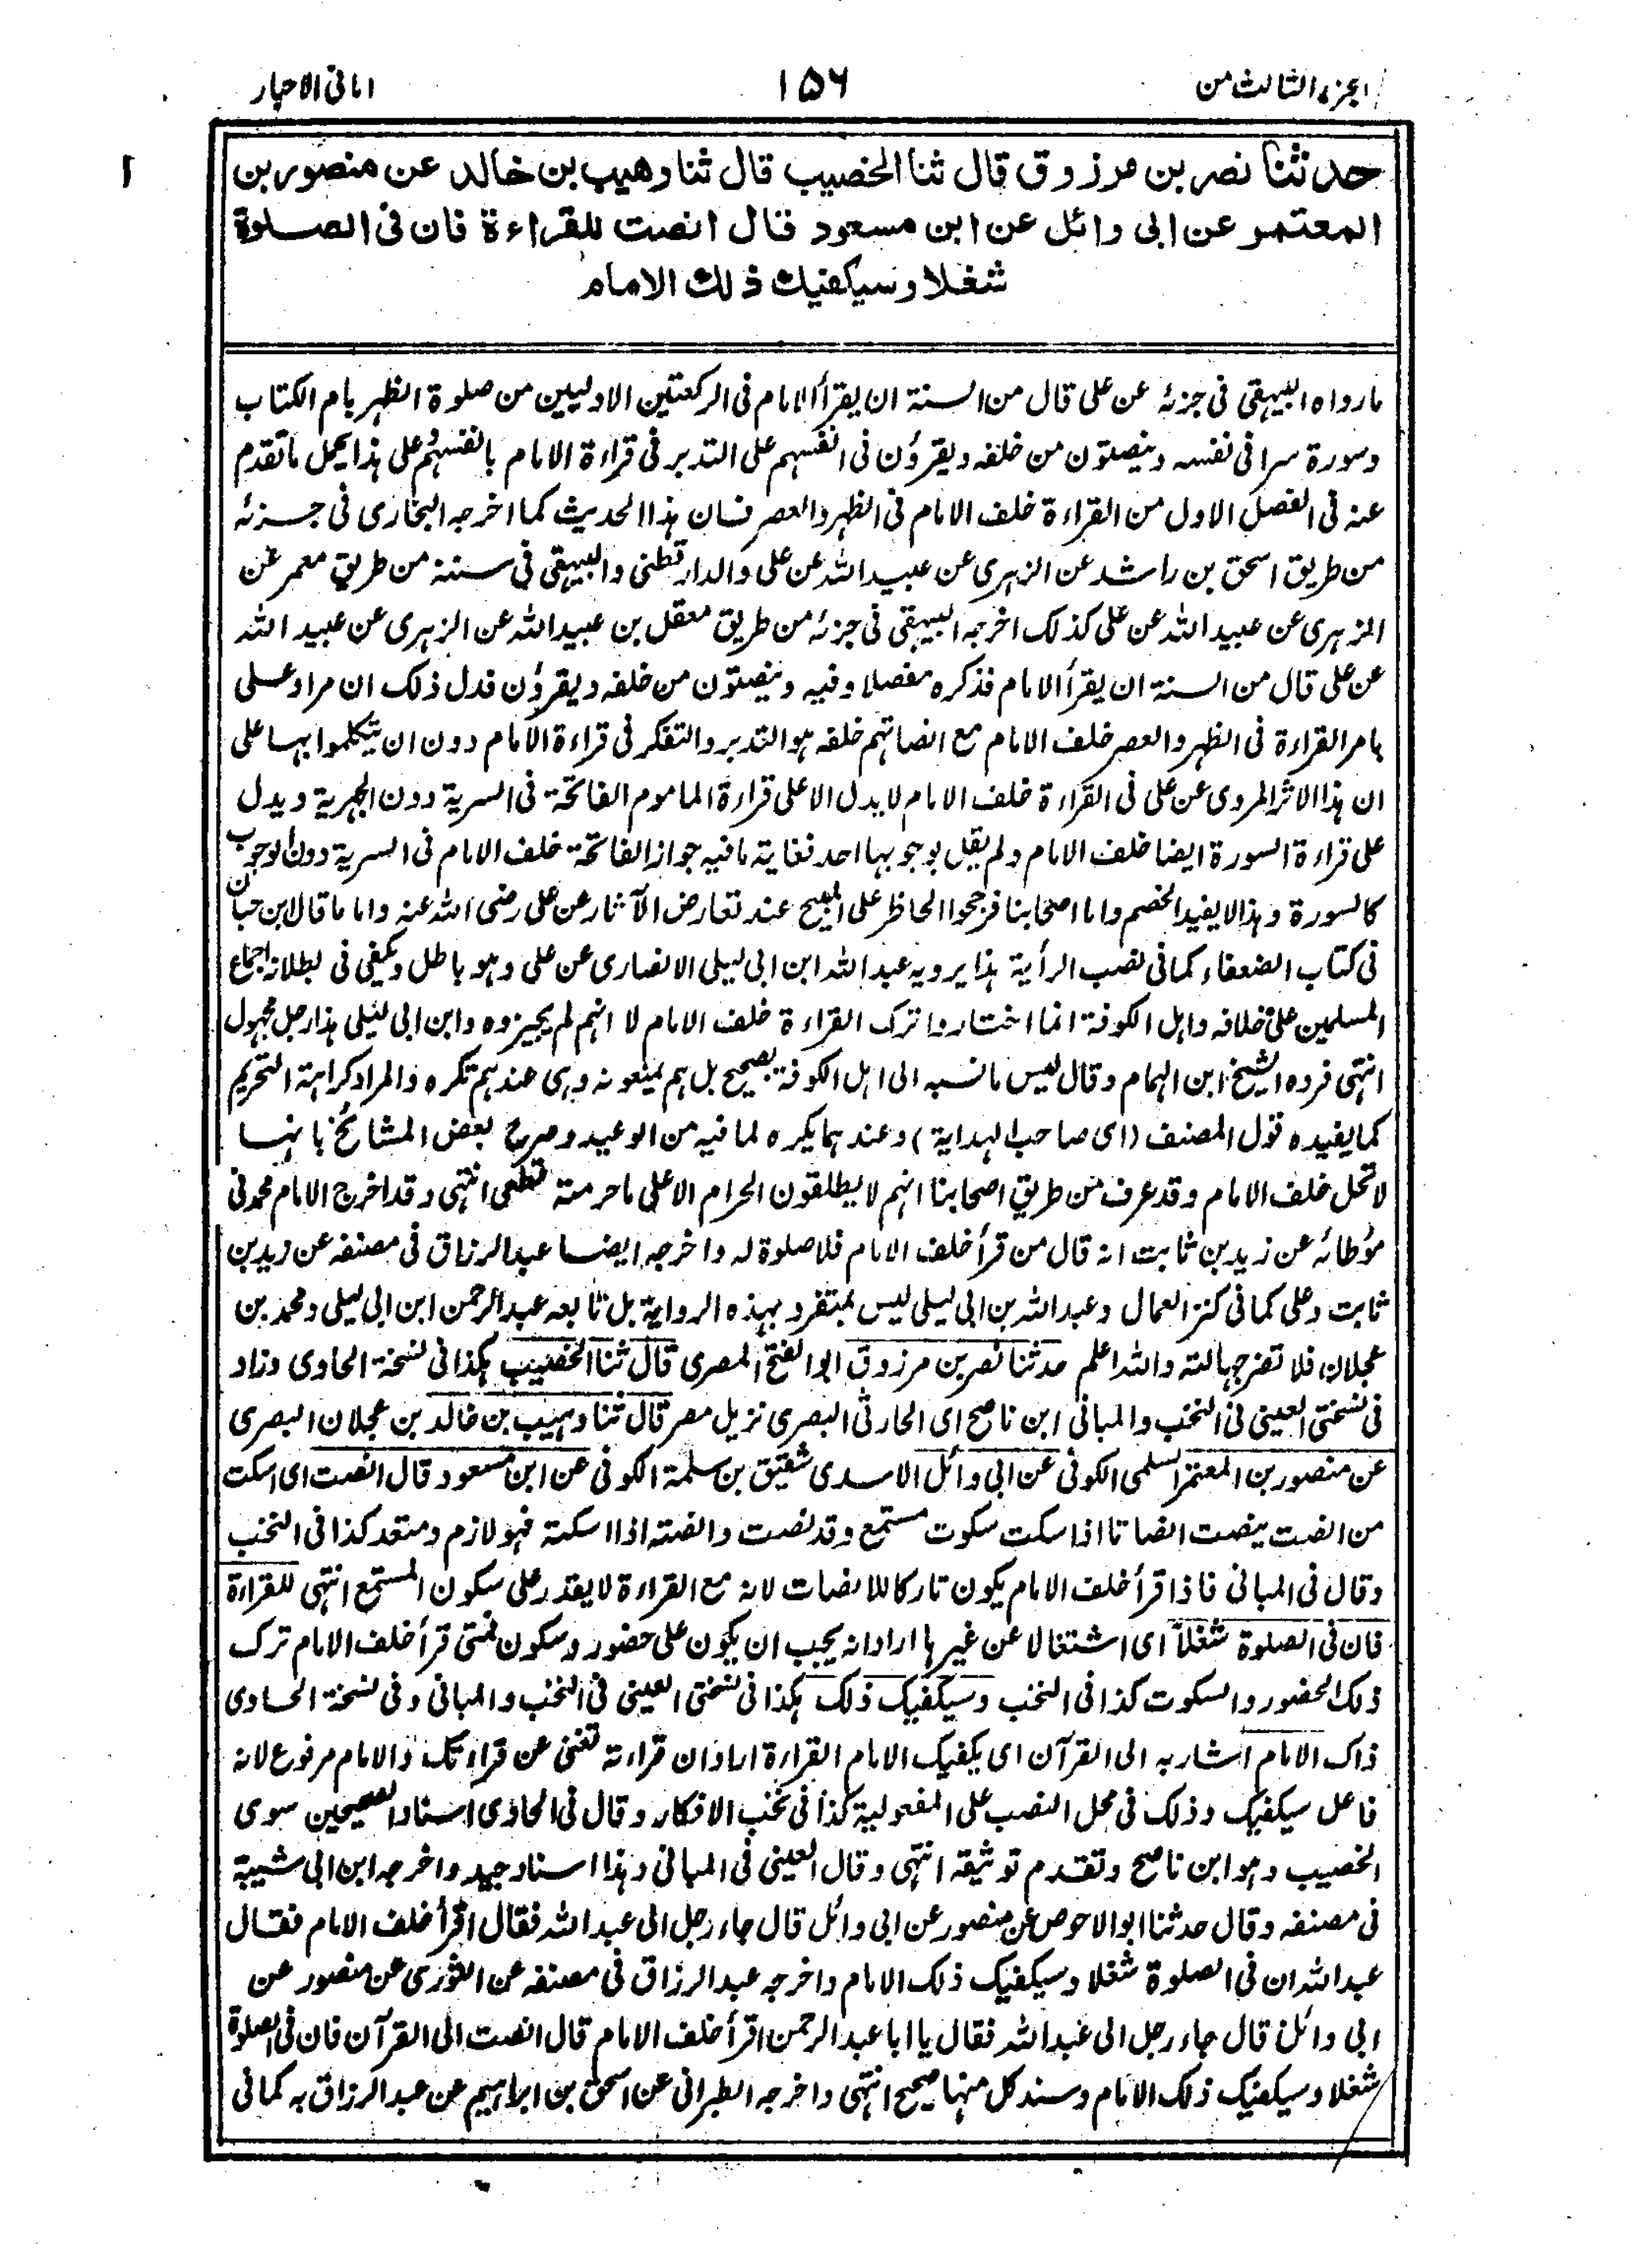 الجزء الثالث من
١٥٦
امانی الاحبار
حدثنا نصر بن مرزوق قال ثنا الخصیب قال ثنا وهیب بن خالد عن منصور بن
المعتمر عن ابی وائل عن ابن مسعود قال انصت للقراءة فان فی الصلوة
شغلا وسیکفیك ذلك الامام
مارواه البیهقی فی جزئه عن علی قال من السنة ان یقرأ الامام فی الرکعتین الاولیین من صلوة الظهر بام الکتاب
وسورة سرا فی نفسه وینصتون من خلفه ویقرؤن فی انفسهم علی التدبر فی قراءة الامام بانفسهم علی هذا یحمل ماتقدم
عنه فی الفصل الاول من القراءة خلف الامام فی الظهر والعصر فان هذا الحدیث کما اخرجه البخاری فی جزئه
من طریق اسحق بن راشد عن الزهری عن عبید الله عن علی والدارقطنی والبیهقی فی سننه من طریق معمر عن
الزهری عن عبید الله عن علی کذلک اخرجه البیهقی فی جزئه من طریق معقل بن عبید الله عن الزهری عن عبید الله
عن علی قال من السنة ان یقرأ الامام فذکره مفصلا وفیه وینصتون من خلفه ویقرؤن فدل ذلک ان مراد علی
بامر القراءة فی الظهر والعصر خلف الامام مع انصاتهم خلفه هو التدبر والتفکر فی قراءة الامام دون ان یتکلموا بها علی
ان هذا الاثر المروی عن علی فی القراءة خلف الامام لا یدل الا علی قراءة الماموم الفاتحة فی السریة دون الجهریة ویدل
علی قراءة السورة ایضا خلف الامام ولم یقل بوجوبها احد فغایة مافیه جواز الفاتحة خلف الامام فی السریة دون الوجوب
کالسورة وهذا لا یفید الخصم واما اصحابنا فرجحوا الحاظر علی المبیح عند تعارض الآثار عن علی رضی الله عنه واما ما قال ابن حبان
فی کتاب الضعفاء کما فی نصب الرأیة هذا یرویه عبد الله ابن ابی لیلی الانصاری عن علی وهو باطل ویکفی فی بطلانه اجماع
المسلمین علی خلافه واهل الکوفة انما اختاروا ترک القراءة خلف الامام لا انهم لم یجیزوه وابن ابی لیلی هذا رجل مجهول
انتهی فرده الشیخ ابن الهمام وقال لیس مانسبه الی اهل الکوفة بصحیح بل هم یمنعونه وهی عندهم تکره والمراد کراهة التحریم
کما یفیده قول المصنف (ای صاحب الهدایة) وعندهما یکره لما فیه من الوعید وصرح بعض المشائخ بانها
لا تحل خلف الامام وقد عرف من طریق اصحابنا انهم لا یطلقون الحرام الا علی ما حرمته قطعی انتهی وقد اخرج الامام محمد فی
مؤطائه عن زید بن ثابت انه قال من قرأ خلف الامام فلا صلوة له واخرجه ایضا عبد الرزاق فی مصنفه عن زید بن
ثابت وعلی کما فی کنز العمال وعبد الله بن ابی لیلی لیس بمتفرد بهذه الروایة بل تابعه عبد الرحمن ابن ابی لیلی ومحمد بن
عجلان فلا تضر جهالته والله اعلم حدثنا نصر بن مرزوق ابو الفتح المصری قال ثنا الخصیب هکذا فی نسخة الحاوی وزاد
فی نسختی العینی فی النخب والمبانی ابن ناصح ای الحارثی البصری نزیل مصر قال ثنا وهیب بن خالد بن عجلان البصری
عن منصور بن المعتمر السلمی الکوفی عن ابی وائل الاسدی شقیق بن سلمة الکوفی عن ابن مسعود قال انصت ای اسکت
من انصت ینصت انصاتا اذا سکت سکوت مستمع وقد نصت وانصته اذا اسکته فهو لازم ومتعد کذا فی النخب
وقال فی المبانی فاذا قرأ خلف الامام یکون تارکا للانصات لانه مع القراءة لا یقدر علی سکون المستمع انتهی للقراءة
فان فی الصلوة شغلاً ای اشتغالا عن غیرها اراد انه یجب ان یکون علی حضور وسکون فمتی قرأ خلف الامام ترک
ذلک الحضور والسکوت کذا فی النخب وسیکفیک ذلک هکذا فی نسختی العینی فی النخب والمبانی وفی نسخة الحاوی
ذاک الامام اشار به الی القرآن ای یکفیک الامام القراءة اراد ان قراءته تغنی عن قراءتک والامام مرفوع لانه
فاعل سیکفیک وذلک فی محل النصب علی المفعولیة کذا فی نخب الافکار وقال فی الحاوی اسناد الصحیحین سوی
الخصیب وهو ابن ناصح وتقدم توثیقه انتهی وقال العینی فی المبانی وهذا اسناد جید واخرجه ابن ابی شیبة
فی مصنفه وقال حدثنا ابو الاحوص عن منصور عن ابی وائل قال جاء رجل الی عبد الله فقال اقرأ خلف الامام فقال
عبد الله ان فی الصلوة شغلا وسیکفیک ذلک الامام واخرجه عبد الرزاق فی مصنفه عن الثوری عن منصور عن
ابی وائل قال جاء رجل الی عبد الله فقال یا ابا عبد الرحمن اقرأ خلف الامام قال انصت الی القرآن فان فی الصلوة
شغلا وسیکفیک ذلک الامام وسند کل منهما صحیح انتهی واخرجه الطبرانی عن اسحق بن ابراهیم عن عبد الرزاق به کما فی